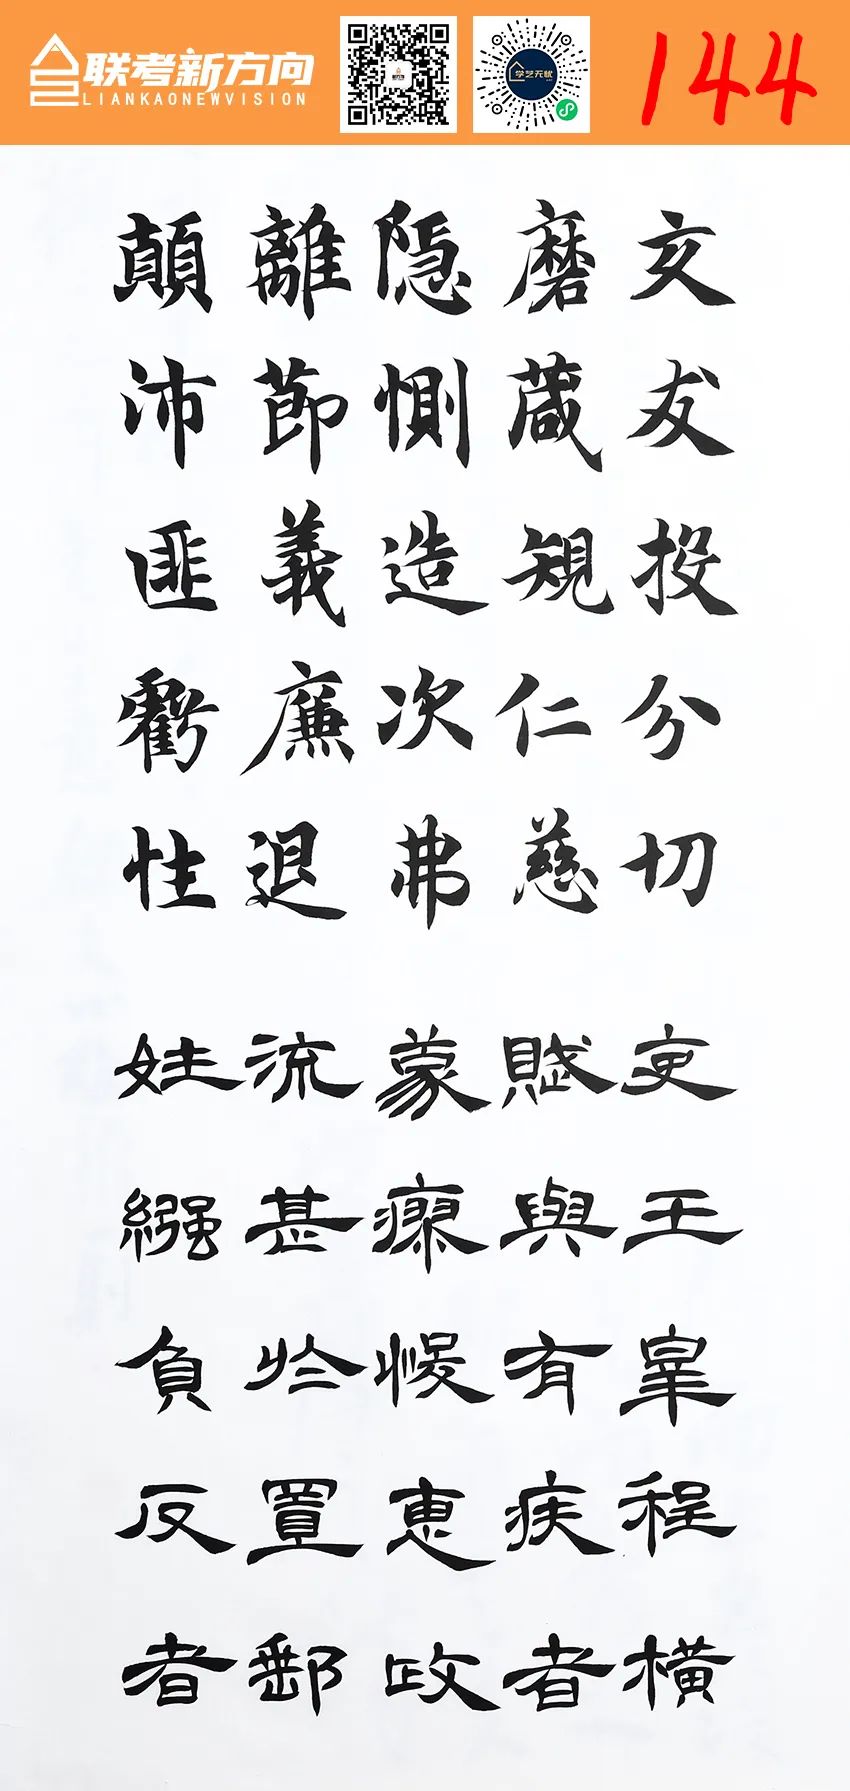 联考新方向
LIANKAONEWVISION
学艺无忧
144
交友投分切
磨葴規仁慈
隱惻造次弗
離節義廉退
顛沛匪虧性
吏王皋程橫
賦與有疾者
蒙瘳悛恵政
流甚於置郵
姓繈負反者